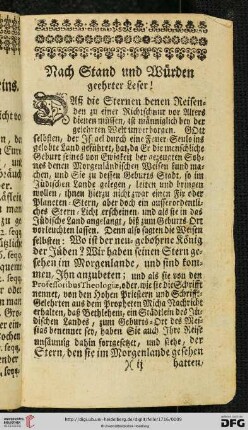 Nach Stand und Würden
geehrter Leser!
Daß die Sternen denen Reisen-
den zu einer Richtschnur vor Alters
dienen müssen, ist männiglich bey der
gelehrten Welt unverborgen. GOtt
selbsten, der Israel durch eine Feuer-Seule ins
gelobte Land geführet, hat, da Er die menschliche
Geburt seines von Ewigkeit her gezeugten Soh-
nes denen Morgenländischen Weisen kund ma-
chen, und Sie zu dessen Geburts-Stadt, so im
Jüdischen Lande gelegen, leiten und bringen
wollen, ihnen hierzu nicht zwar einen Fix- oder
Planeten-Stern, aber doch ein ausserordentli-
ches Stern-Licht erscheinen, und als sie in das
Jüdische Land angelangt, biß zum Geburts-Ort
vorleuchten lassen. Denn also sagten die Weisen
selbsten: Wo ist der neu-gebohrne König
der Jüden? Wir haben seinen Stern ge-
sehen im Morgenlande, und sind kom-
men, Ihn anzubeten; und als sie von den
Professoribus Theologiæ, oder, wie sie die Schrifft
nennet, von den Hohen Priestern und Schrifft-
Gelehrten aus dem Propheten Micha Nachricht
erhalten, daß Bethlehem, ein Städtlein des Jü-
dischen Landes, zum Geburts-Ort des Mes-
sias benennet sey, haben Sie auch Ihre Reise
unsäumig dahin fortgesetzt, und siehe, der
Stern, den sie im Morgenlande gesehen
hatten,